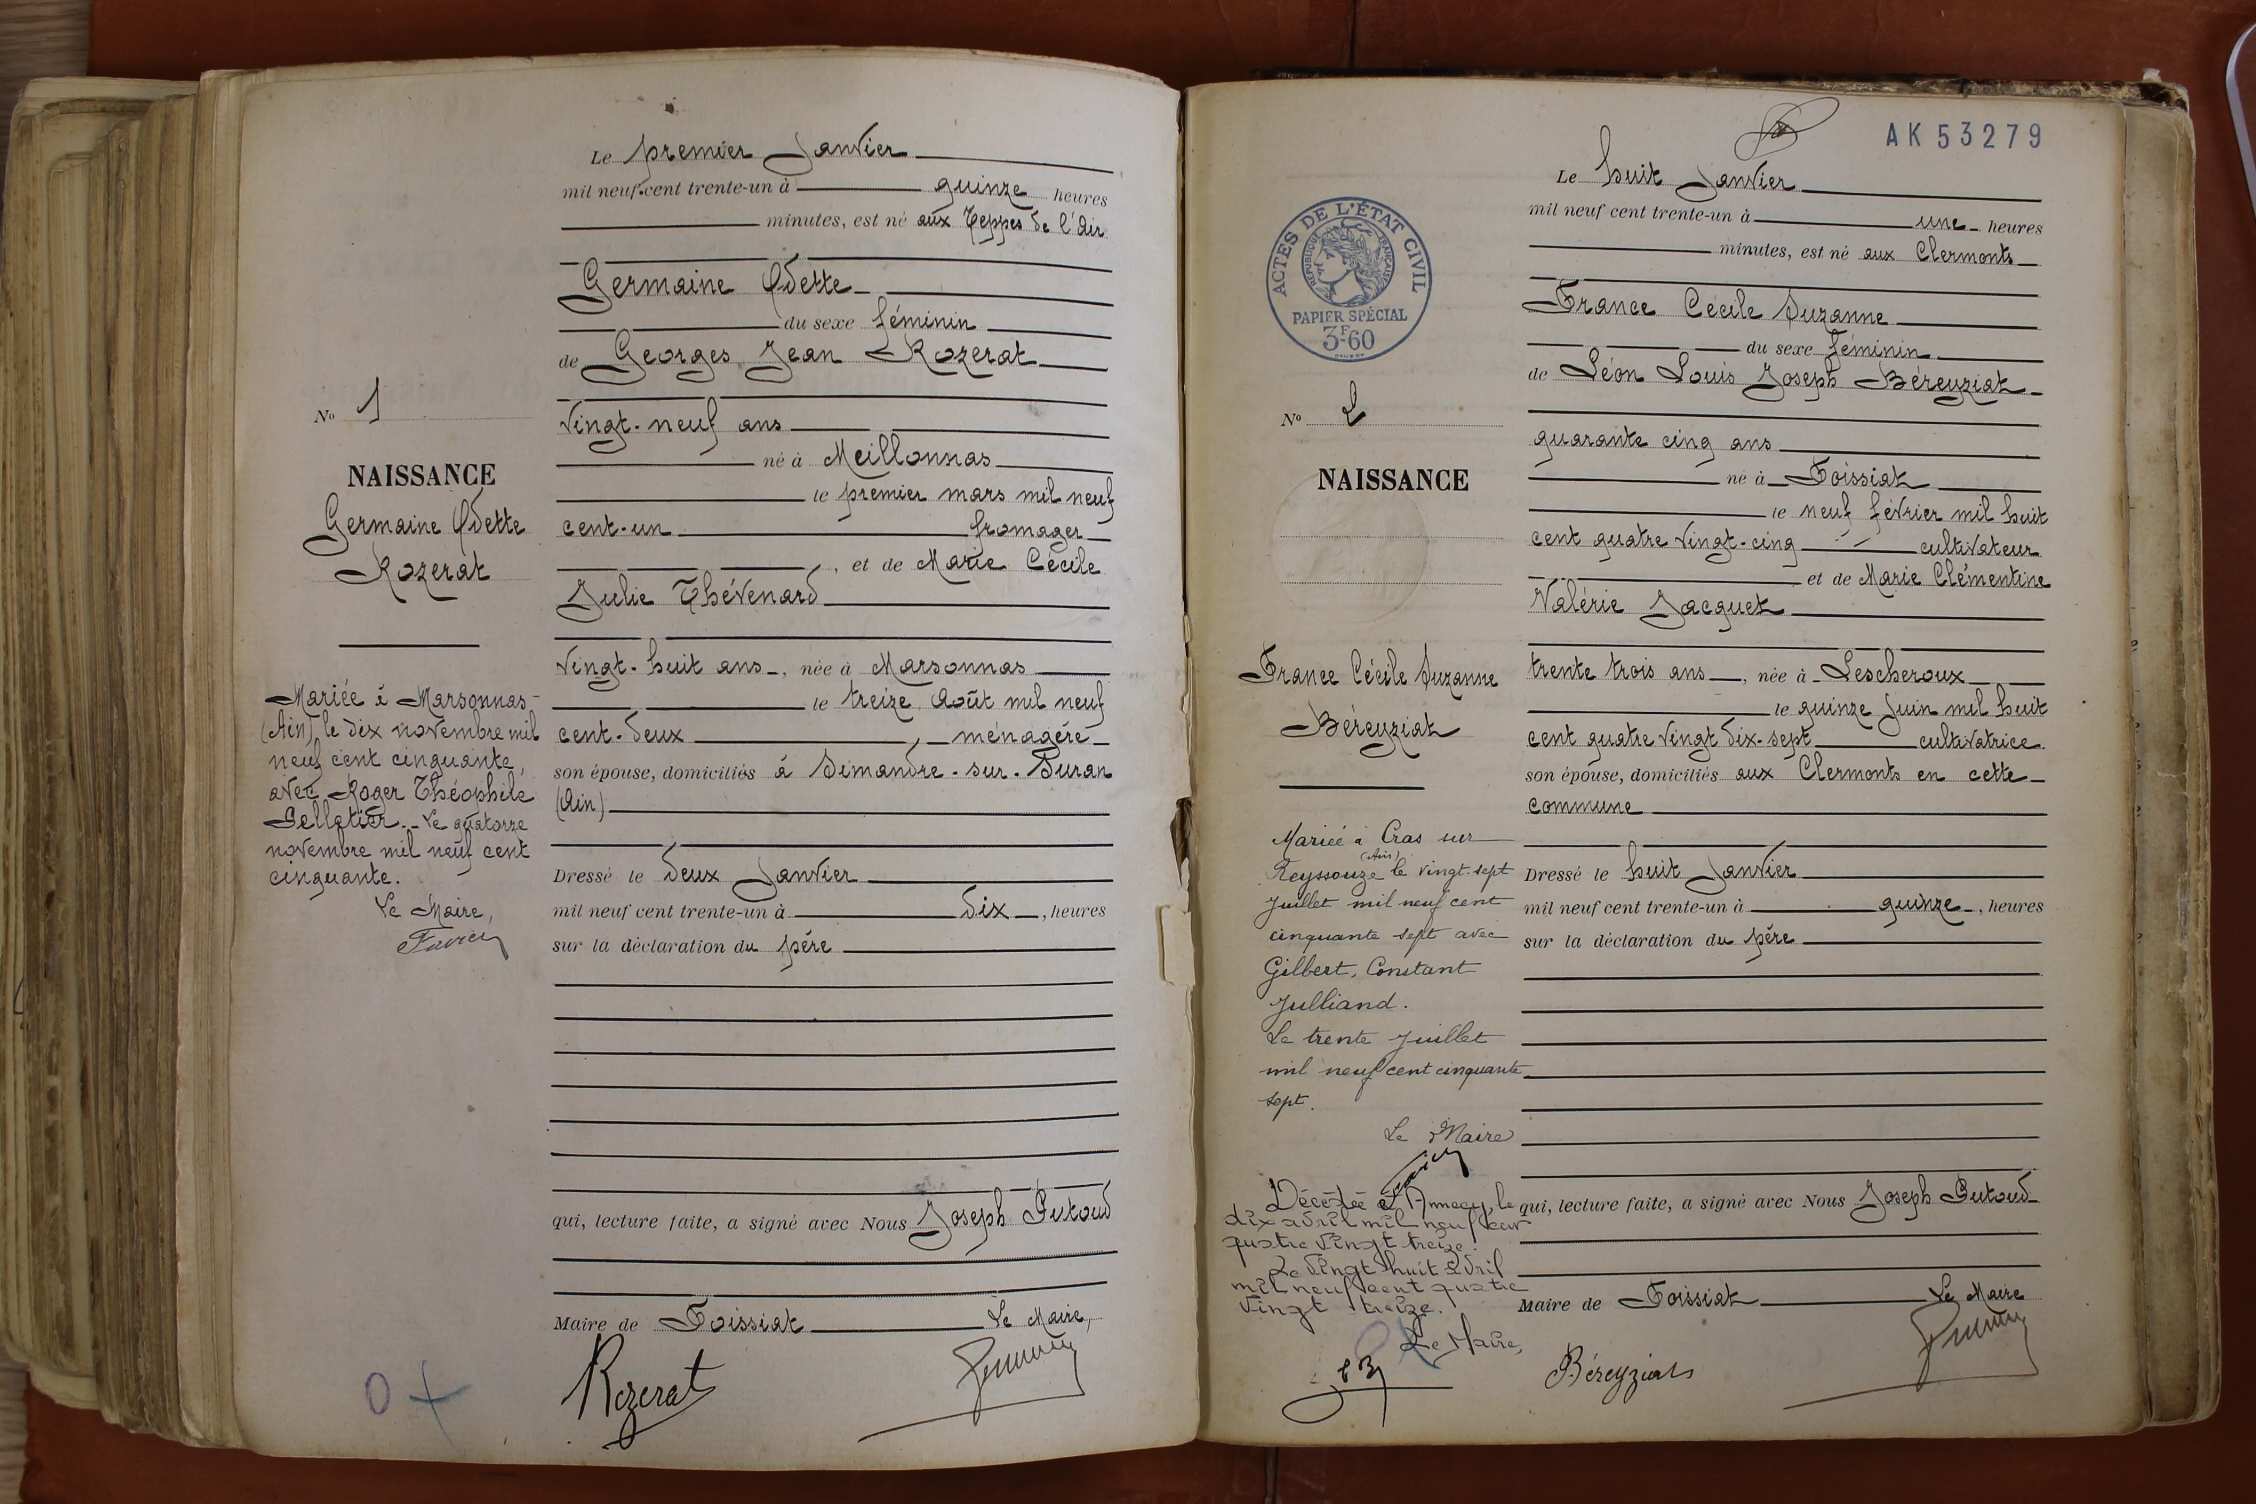 Le premier Janvier
mil neuf cent trente-un à quinze heures
minutes, est né aux Teppes de l'Air
Germaine Odette
du sexe féminin
de Georges Jean Rozerat
vingt-neuf ans
né à Meillonnas
le premier mars mil neuf
cent-un fromager
, et de Marie Cécile
Julie Thévenard
vingt-huit ans, née à Marsonnas
le treize Août mil neuf
cent-deux, ménagère
son épouse, domiciliés à Simandre-sur-Suran
(Ain)
Dressé le deux Janvier
mil neuf cent trente-un à dix, heures
sur la déclaration du père
qui, lecture faite, a signé avec Nous Joseph Putoud
Maire de Foissiat Le Maire,
Rozerat
No 1
NAISSANCE
Germaine Odette
Rozerat
Mariée à Marsonnas
(Ain), le dix novembre mil
neuf cent cinquante,
avec Roger Théophile
Pelletier. Le quatorze
novembre mil neuf cent
cinquante.
Le Maire,
Favier
AK 53279
ACTES DE L'ÉTAT CIVIL
RÉPUBLIQUE FRANÇAISE
PAPIER SPÉCIAL
3F60
No 2
NAISSANCE
France Cécile Suzanne
Béreyziat
Mariée à Cras sur
(Ain)
Reyssouze le vingt-sept
Juillet mil neuf cent
cinquante sept avec
Gilbert, Constant
Julliand.
Le trente Juillet
mil neuf cent cinquante
sept.
Le Maire
Favier
Décédée à Annecy, le
dix avril mil neuf cent
quatre vingt treize.
Le vingt huit avril
mil neuf cent quatre
vingt treize.
Le Maire,
Le huit Janvier
mil neuf cent trente-un à une heures
minutes, est né aux Clermonts
France Cécile Suzanne
du sexe féminin
de Léon Louis Joseph Béreyziat
quarante cinq ans
né à Foissiat
le neuf février mil huit
cent quatre vingt-cinq cultivateur
et de Marie Clémentine
Valérie Jacquet
trente trois ans, née à Lescheroux
le quinze Juin mil huit
cent quatre vingt dix-sept cultivatrice
son épouse, domiciliés aux Clermonts en cette
commune
Dressé le huit Janvier
mil neuf cent trente-un à quinze, heures
sur la déclaration du père
qui, lecture faite, a signé avec Nous Joseph Putoud
Maire de Foissiat Le Maire
Béreyziat